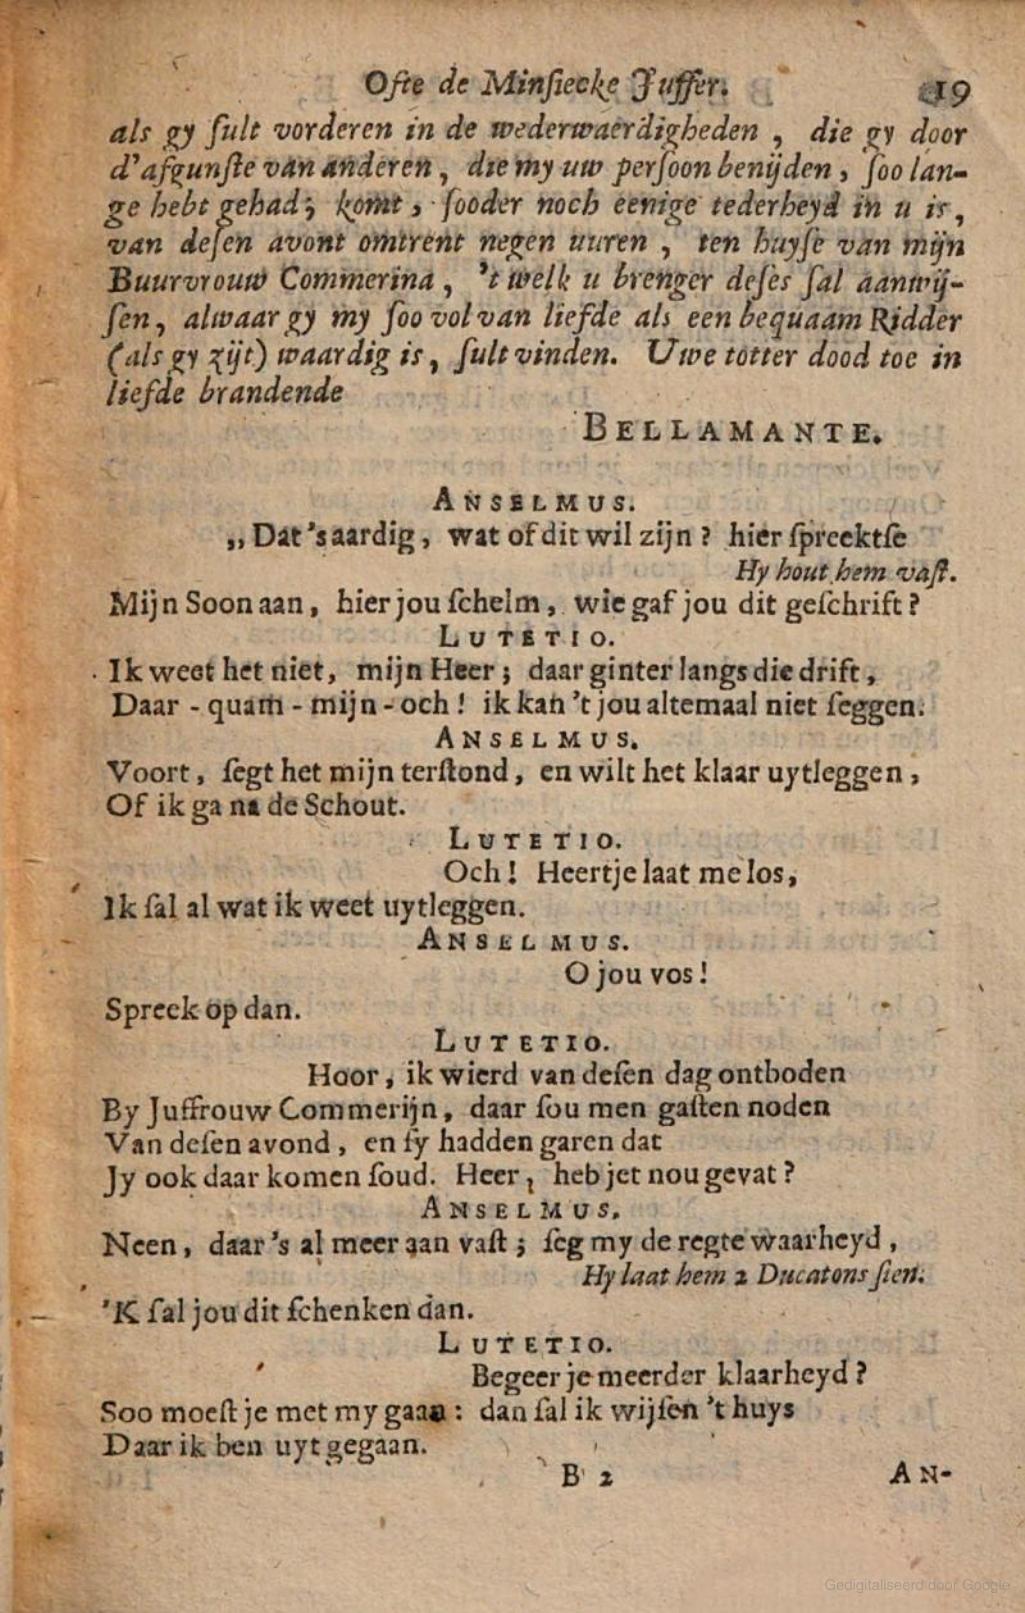 Ofte de Minſiecke Juffer. 19
als gy ſult vorderen in de wederwaerdigheden, die gy door
d'afgunſte van anderen, die my uw perſoon benijden, ſoo lan-
ge hebt gehad; komt, ſooder noch eenige tederheyd in u is,
van deſen avont omtrent negen uuren, ten huyſe van mijn
Buurvrouw Commerina, 't welk u brenger deſes ſal aanwij-
ſen, alwaar gy my ſoo vol van liefde als een bequaam Ridder
(als gy zijt) waardig is, ſult vinden. Uwe totter dood toe in
liefde brandende
BELLAMANTE.
ANSELMUS.
„Dat 's aardig, wat of dit wil zijn? hier ſpreektſe
Hy hout hem vaſt.
Mijn Soon aan, hier jou ſchelm, wie gaf jou dit geſchrift?
LUTETIO.
Ik weet het niet, mijn Heer; daar ginter langs die drift,
Daar - quam - mijn - och! ik kan 't jou altemaal niet ſeggen.
ANSELMUS.
Voort, ſegt het mijn terſtond, en wilt het klaar uytleggen,
Of ik ga na de Schout.
LUTETIO.
Och! Heertje laat me los,
Ik ſal al wat ik weet uytleggen.
ANSELMUS.
O jou vos!
Spreek op dan.
LUTETIO.
Hoor, ik wierd van deſen dag ontboden
By Juffrouw Commerijn, daar ſou men gaſten noden
Van deſen avond, en ſy hadden garen dat
Jy ook daar komen ſoud. Heer, heb jet nou gevat?
ANSELMUS.
Neen, daar 's al meer aan vaſt; ſeg my de regte waarheyd,
Hy laat hem 2 Ducatons ſien.
'K ſal jou dit ſchenken dan.
LUTETIO.
Begeer je meerder klaarheyd?
Soo moeſt je met my gaan: dan ſal ik wijſen 't huys
Daar ik ben uyt gegaan.
B 2 AN-
Gedigitaliseerd door Google